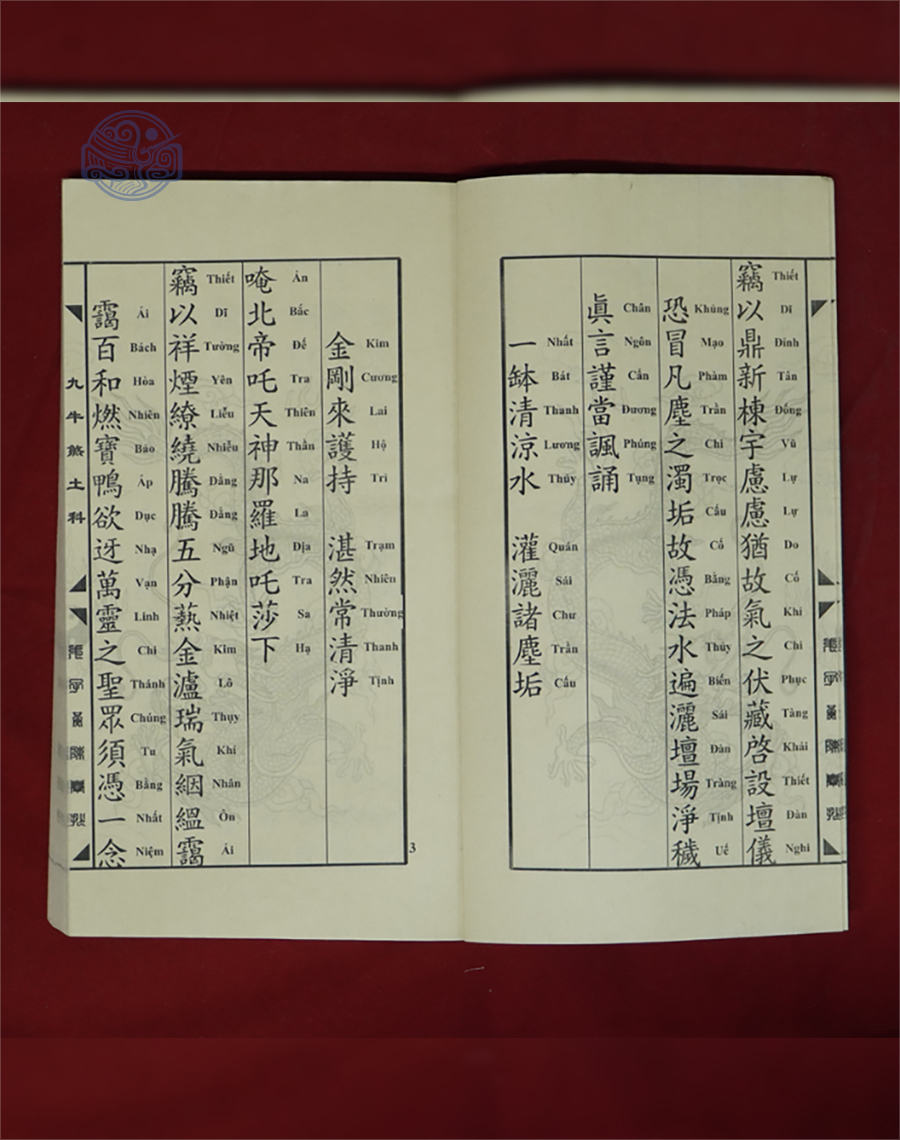 竊以鼎新棟宇慮慮猶故氣之伏藏啓設壇儀
Thiết Dĩ Đỉnh Tân Đống Vũ Lự Lự Do Cố Khí Chi Phục Tàng Khải Thiết Đàn Nghi
恐冒凡塵之濁垢故憑法水遍灑壇場淨穢
Khủng Mạo Phàm Trần Chi Trọc Cấu Cố Bằng Pháp Thủy Biến Sái Đàn Tràng Tịnh Uế
眞言謹當諷誦
Chân Ngôn Cẩn Đương Phúng Tụng
一缽清涼水 灌灑諸塵垢
Nhất Bát Thanh Lương Thủy Quán Sái Chư Trần Cấu
金剛來護持 湛然常清淨
Kim Cương Lai Hộ Trì Trạm Nhiên Thường Thanh Tịnh
唵北帝吒天神那羅地吒莎下
Án Bắc Đế Tra Thiên Thần Na La Địa Tra Sa Hạ
竊以祥煙繚繞騰騰五分爇金瀘瑞氣絪縕靄
Thiết Dĩ Tường Yên Liễu Nhiễu Đằng Đằng Ngũ Phận Nhiệt Kim Lô Thụy Khí Nhân Ôn Ái
靄百和燃寶鴨欲迓萬靈之聖眾須憑一念
Ái Bách Hòa Nhiên Bảo Áp Dục Nhạ Vạn Linh Chi Thánh Chúng Tu Bằng Nhất Niệm
九牛煞土科
3